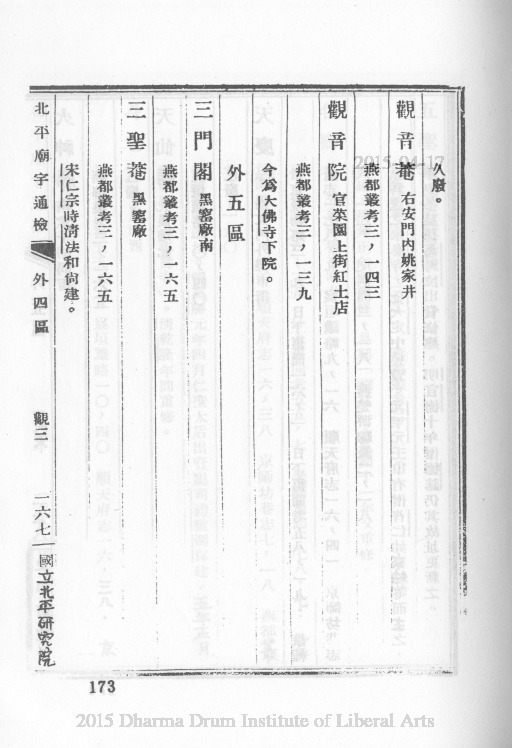 久廢。
觀音菴 右安門內姚家井
燕都叢考三，一四三
觀音院 官菜園上街紅土店
燕都叢考三，一三九
今爲大佛寺下院。
外五區
三門閣 黑窰廠南
燕都叢考三，一六五
三聖菴 黑窰廠
燕都叢考三，一六五
宋仁宗時淸法和尙建。
北平廟宇通檢 外四區 觀三 一六七 國立北平研究院
173
2015-04-17
2015 Dharma Drum Institute of Liberal Arts